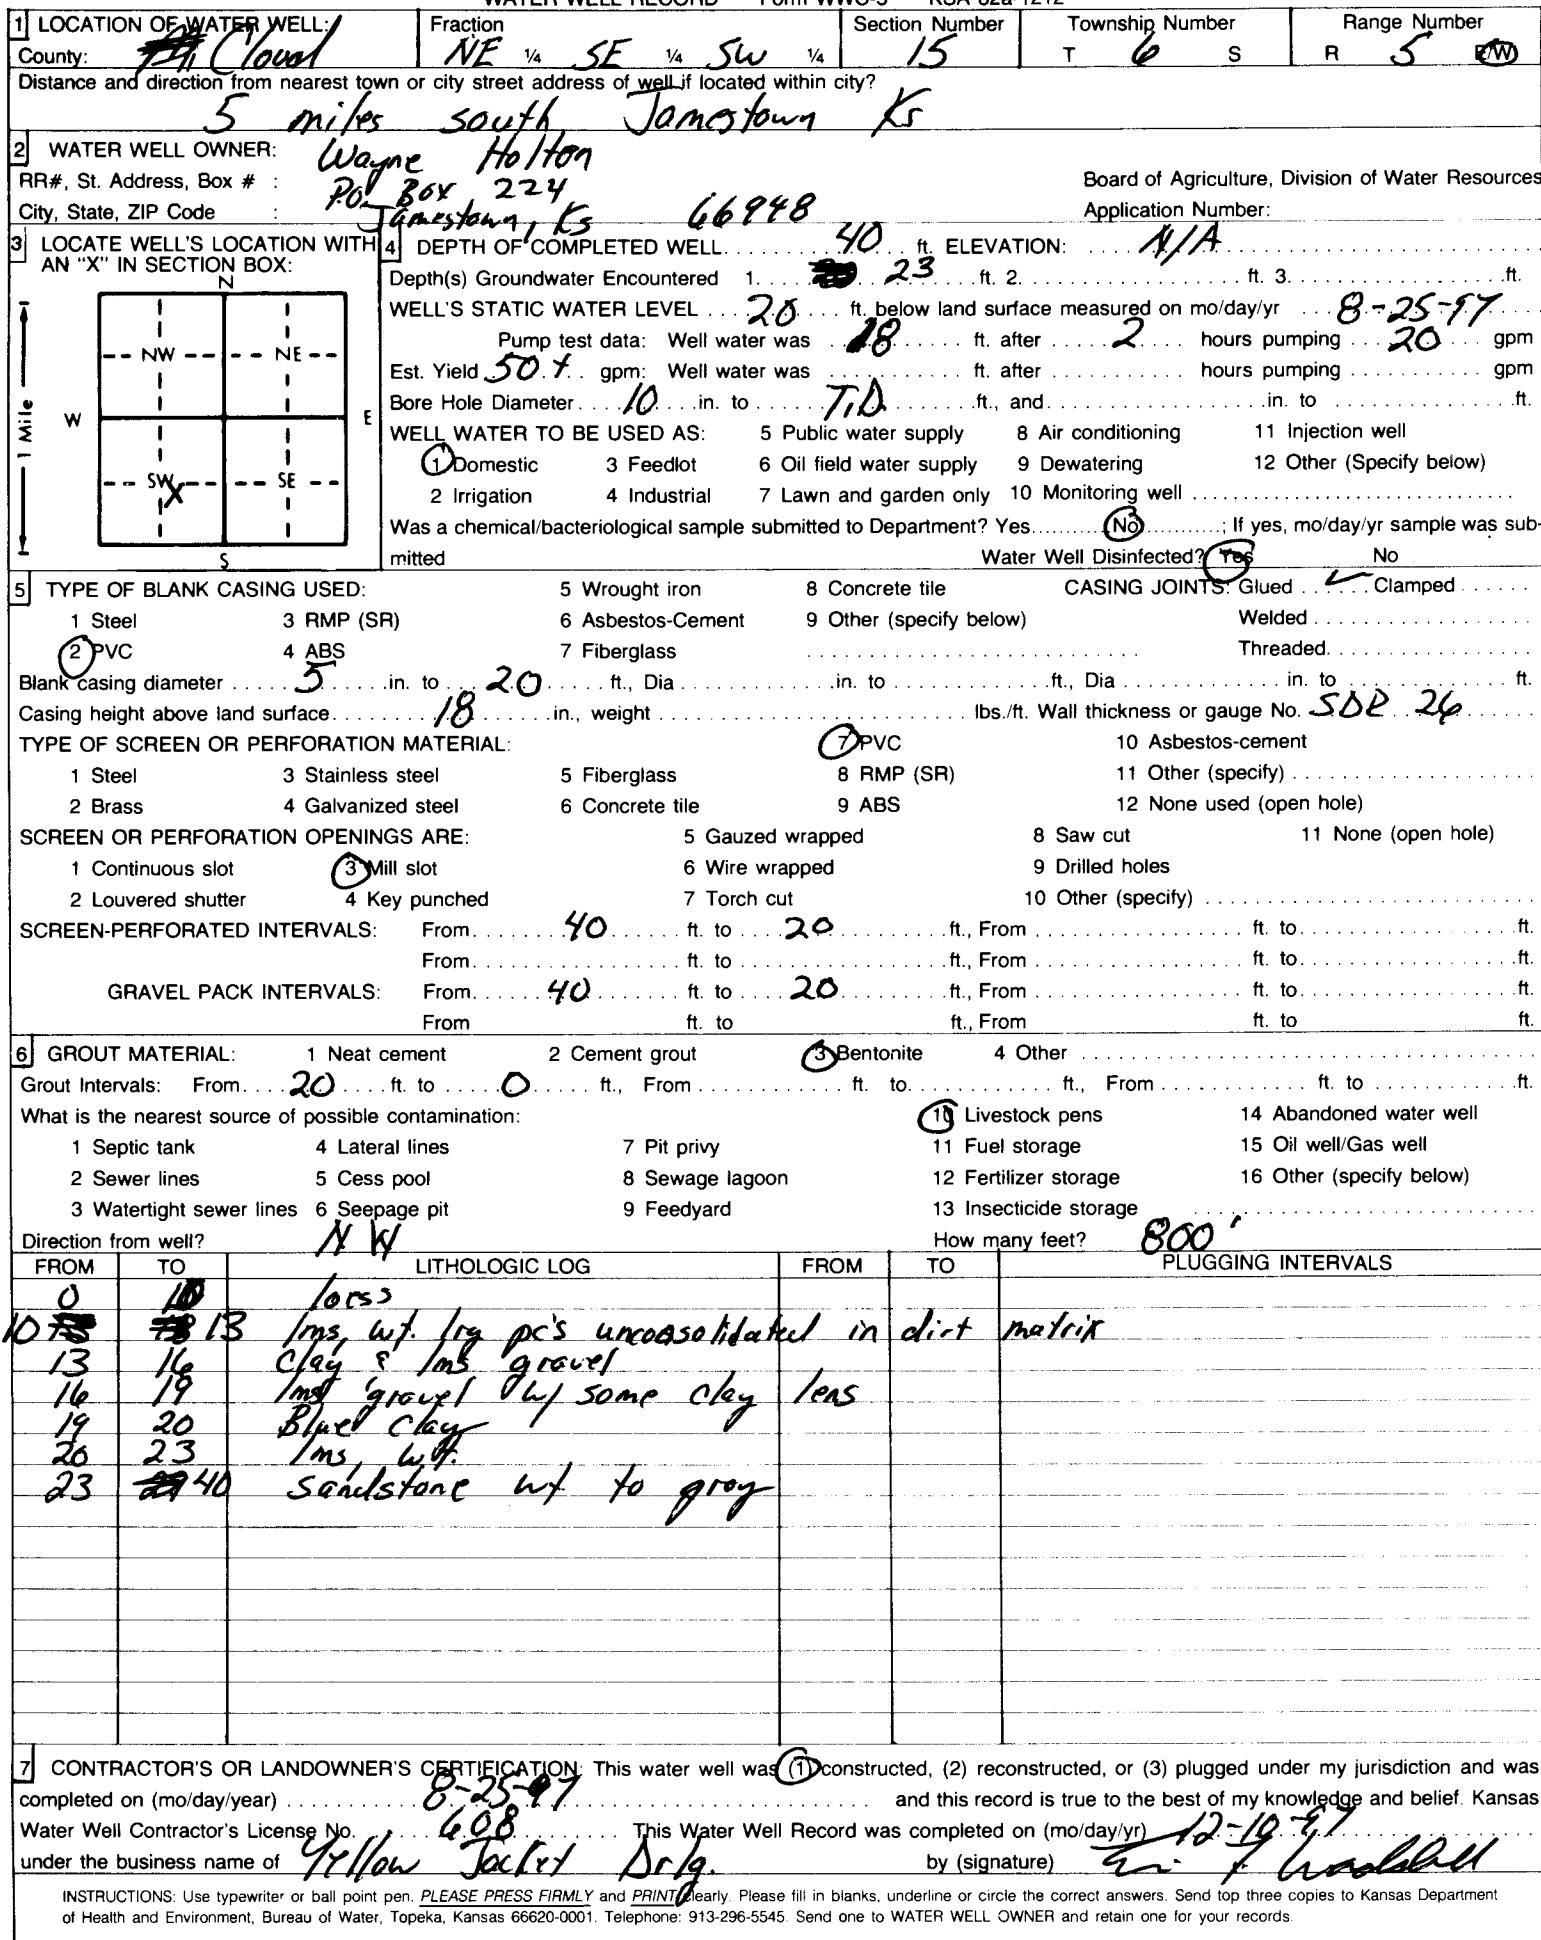 WATER WELL RECORD Form WWC-5 KSA 82a-1212
1 LOCATION OF WATER WELL: Fraction Section Number Township Number Range Number
County: Cloud NE ¼ SE ¼ SW ¼ 15 T 6 S R 5 E/W
Distance and direction from nearest town or city street address of well if located within city?
5 miles south, Jamestown Ks
2 WATER WELL OWNER: Wayne Holton
RR#, St. Address, Box # : P.O. Box 224 Board of Agriculture, Division of Water Resources
City, State, ZIP Code : Jamestown, Ks 66948 Application Number:
3 LOCATE WELL'S LOCATION WITH AN "X" IN SECTION BOX:
N
NW NE
W E
SW X SE
S
1 Mile
4 DEPTH OF COMPLETED WELL 40 ft. ELEVATION: N/A
Depth(s) Groundwater Encountered 1. 23 ft. 2. ft. 3. ft.
WELL'S STATIC WATER LEVEL 20 ft. below land surface measured on mo/day/yr 8-25-97
Pump test data: Well water was 28 ft. after 2 hours pumping 20 gpm
Est. Yield 50+ gpm: Well water was ft. after hours pumping gpm
Bore Hole Diameter 10 in. to T.D. ft., and in. to ft.
WELL WATER TO BE USED AS: 5 Public water supply 8 Air conditioning 11 Injection well
1 Domestic 3 Feedlot 6 Oil field water supply 9 Dewatering 12 Other (Specify below)
2 Irrigation 4 Industrial 7 Lawn and garden only 10 Monitoring well
Was a chemical/bacteriological sample submitted to Department? Yes No ; If yes, mo/day/yr sample was sub-
mitted Water Well Disinfected? Yes No
5 TYPE OF BLANK CASING USED: 5 Wrought iron 8 Concrete tile CASING JOINTS: Glued ✓ Clamped
1 Steel 3 RMP (SR) 6 Asbestos-Cement 9 Other (specify below) Welded
2 PVC 4 ABS 7 Fiberglass Threaded
Blank casing diameter 5 in. to 20 ft., Dia in. to ft., Dia in. to ft.
Casing height above land surface 18 in., weight lbs./ft. Wall thickness or gauge No. SDR 26
TYPE OF SCREEN OR PERFORATION MATERIAL: 7 PVC 10 Asbestos-cement
1 Steel 3 Stainless steel 5 Fiberglass 8 RMP (SR) 11 Other (specify)
2 Brass 4 Galvanized steel 6 Concrete tile 9 ABS 12 None used (open hole)
SCREEN OR PERFORATION OPENINGS ARE: 5 Gauzed wrapped 8 Saw cut 11 None (open hole)
1 Continuous slot 3 Mill slot 6 Wire wrapped 9 Drilled holes
2 Louvered shutter 4 Key punched 7 Torch cut 10 Other (specify)
SCREEN-PERFORATED INTERVALS: From 40 ft. to 20 ft., From ft. to ft.
From ft. to ft., From ft. to ft.
GRAVEL PACK INTERVALS: From 40 ft. to 20 ft., From ft. to ft.
From ft. to ft., From ft. to ft.
6 GROUT MATERIAL: 1 Neat cement 2 Cement grout 3 Bentonite 4 Other
Grout Intervals: From 20 ft. to 0 ft., From ft. to ft., From ft. to ft.
What is the nearest source of possible contamination: 10 Livestock pens 14 Abandoned water well
1 Septic tank 4 Lateral lines 7 Pit privy 11 Fuel storage 15 Oil well/Gas well
2 Sewer lines 5 Cess pool 8 Sewage lagoon 12 Fertilizer storage 16 Other (specify below)
3 Watertight sewer lines 6 Seepage pit 9 Feedyard 13 Insecticide storage
Direction from well? NW How many feet? 800'
FROM TO LITHOLOGIC LOG FROM TO PLUGGING INTERVALS
0 10 loess
10 13 lms, wt. lrg pc's unconsolidated in dirt matrix
13 16 Clay & lms gravel
16 19 lms gravel w/ some clay lens
19 20 Blue Clay
20 23 lms, wt.
23 40 Sandstone wt to gray
7 CONTRACTOR'S OR LANDOWNER'S CERTIFICATION: This water well was (1) constructed, (2) reconstructed, or (3) plugged under my jurisdiction and was
completed on (mo/day/year) 8-25-97 and this record is true to the best of my knowledge and belief. Kansas
Water Well Contractor's License No. 608 This Water Well Record was completed on (mo/day/yr) 12-10-97
under the business name of Yellow Jacket Drlg. by (signature)
INSTRUCTIONS: Use typewriter or ball point pen. PLEASE PRESS FIRMLY and PRINT clearly. Please fill in blanks, underline or circle the correct answers. Send top three copies to Kansas Department
of Health and Environment, Bureau of Water, Topeka, Kansas 66620-0001. Telephone: 913-296-5545. Send one to WATER WELL OWNER and retain one for your records.